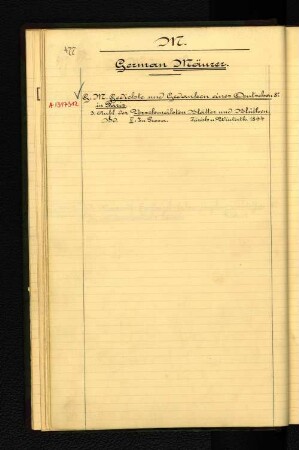 422
M.
German Mäurer.
G. M. Gedichte und Gedanken eines Deutschen 8°.
in Paris
A 1397512
2. Aufl. der Verschmähten Blätter und Blüthen.
Bd. I. In Prosa. Zürich u. Winterth. 1844